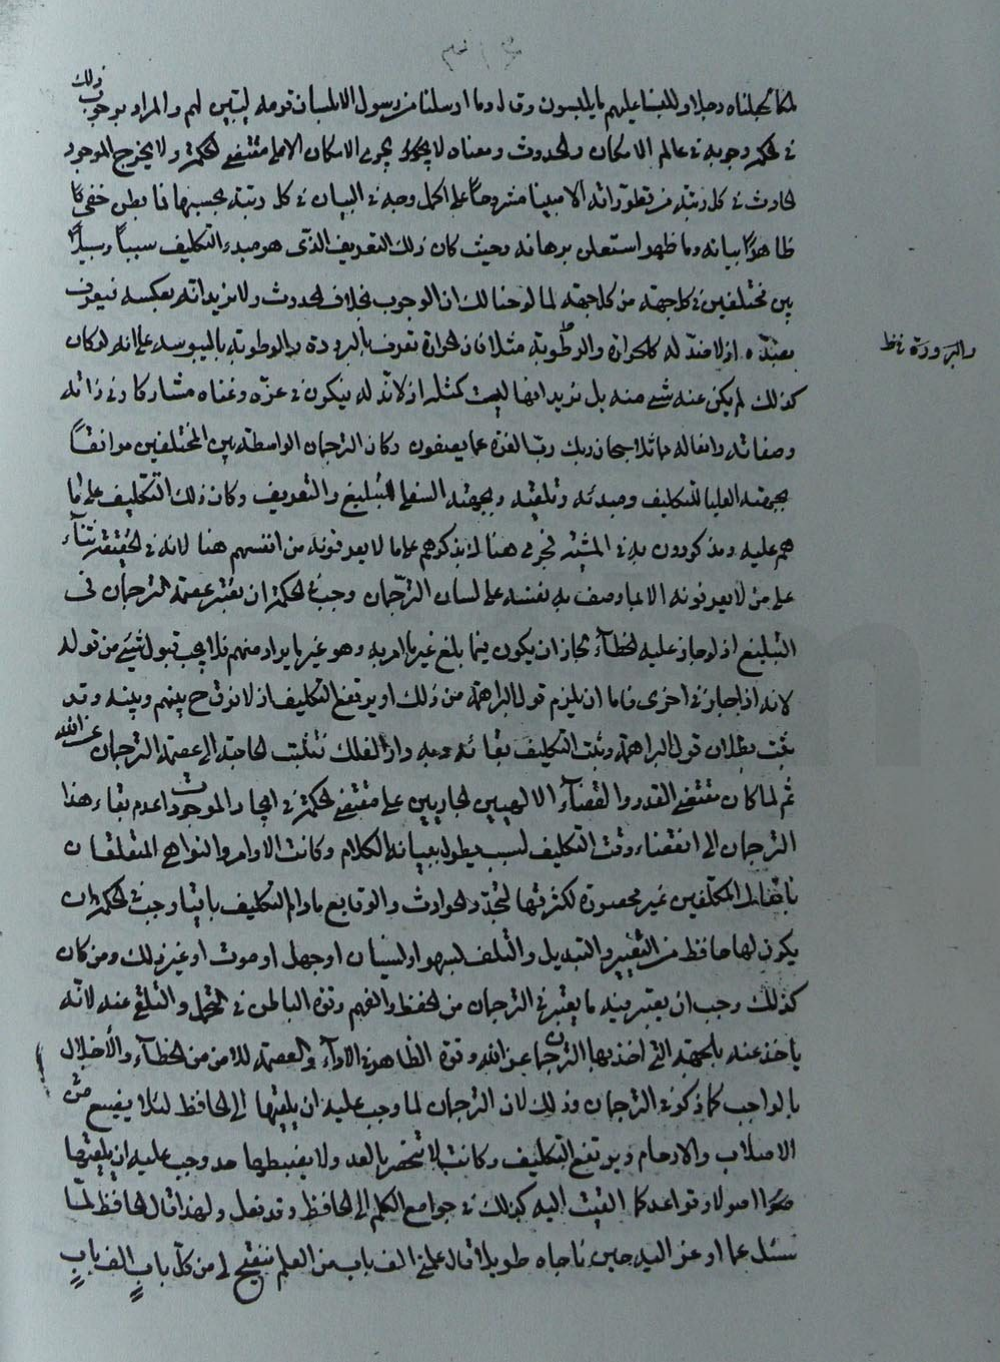 ملكا لجعلناه رجلا وللبسنا عليهم ما يلبسون وقال وما ارسلنا من رسول الا بلسان قومه ليبين لهم والمراد بوجوب ذلك
في الحكمة وجوبه في عالم الامكان والحدوث ومعناه لا يجرى الامكان الا على مقتضى الحكمة ولا يخرج الموجود
الحادث في كل رتبة من تطوراته الا مبينا مشروحا على اكمل وجه في البيان في كل رتبة بحسبها فما بطن خفى كان
ظاهرا بيانه وما ظهر استعلن برهانه وحيث كان ذلك التعريف الذى هو مبدء التكليف سببا وسبيلا
بين مختلفين في كل جهة من كل جهة لما لوحنا لك ان الوجوب بخلاف الحدوث ولا نريد انه بعكسه فيعرف
بضده اذ لا ضد له كالحرارة والرطوبة مثلا فان الحرارة تعرف بالبرودة والرطوبة باليبوسة على انه لو كان
والبرودة خ ظ
كذلك لم يكن عنه شىء منه بل نريد انها ليست كمثله اذ لا ند له فيكون في عزه وغناه مشاركا في ذاته
وصفاته وافعاله مماثلا سبحان ربك رب العزة عما يصفون وكان الترجمان الواسطة بين المختلفين موافقا
بجهته العليا للتكليف ومبدئه وتلقيه وبجهته السفلى للتبليغ والتعريف وكان ذلك التكليف على ما
هم عليه ومذكورون به في المشية فجرى هنا لا يذكرهم على ما لا يعرفونه من انفسهم هنا لانه في الحقيقة ثناء
على من لا يعرفونه الا بما وصف به نفسه على لسان الترجمان وجب في الحكمة ان يعتبر عصمة الترجمان في
التبليغ اذ لو جاز عليه الخطاء لجاز ان يكون فيما بلغ غير ما امر به وهو غير ما يراد منهم فلا يجب قبول شىء من قوله
لانه اذا جاز في اخرى فاما ان يلزم قول البراهمة من ذلك او يرتفع التكليف اذ لا فرق ح بينهم وبينه وقد
ثبت بطلان قول البراهمة وثبت التكليف بقائه وبه دار الفلك فثبتت الحاجة الى عصمة الترجمان عن الله
ثم لما كان مقتضى القدر والقضاء الالهيين الجاريين على مقتضى الحكمة في ايجاد الموجودات عدم بقاء هذا
الترجمان الى انقضاء وقت التكليف لسبب يطول ببيانه الكلام وكانت الاوامر والنواهى المتعلقان
بافعال المكلفين غير محصورة لكثرتها لتجدد الحوادث والوقايع ما دام التكليف باقيا وجب في الحكمة ان
يكون لها حافظ من التغيير والتبديل والتلف لسهو او لنسيان او جهل او موت او غير ذلك ومن كان
كذلك وجب ان يعتبر فيه ما يعتبر في الترجمان من الحفظ والفهم وقوة الباطن في التحمل والتلقى عنه لانه
ياخذ عنه بالجهة التى اخذ بها الترجمان عن الله وقوة الظاهر في الاداء والعصمة للامن من الخطاء والاخلال
بالواجب كما ذكر في الترجمان وذلك لان الترجمان لما وجب عليه ان يلقيها الى الحافظ لئلا يضيع من في
الاصلاب والارحام ويرتفع التكليف وكانت لا تنحصر بالعد ولا يضبطها حد وجب عليه ان يلقيها
اصولا وقواعد كما القيت اليه كذلك في جوامع الكلم الى الحافظ وقد فعل ولهذا قال الحافظ لما
سئل عما اوعز اليه حين ناجاه طويلا قال علمنى الف باب من العلم ينفتح لى من كل باب الف باب